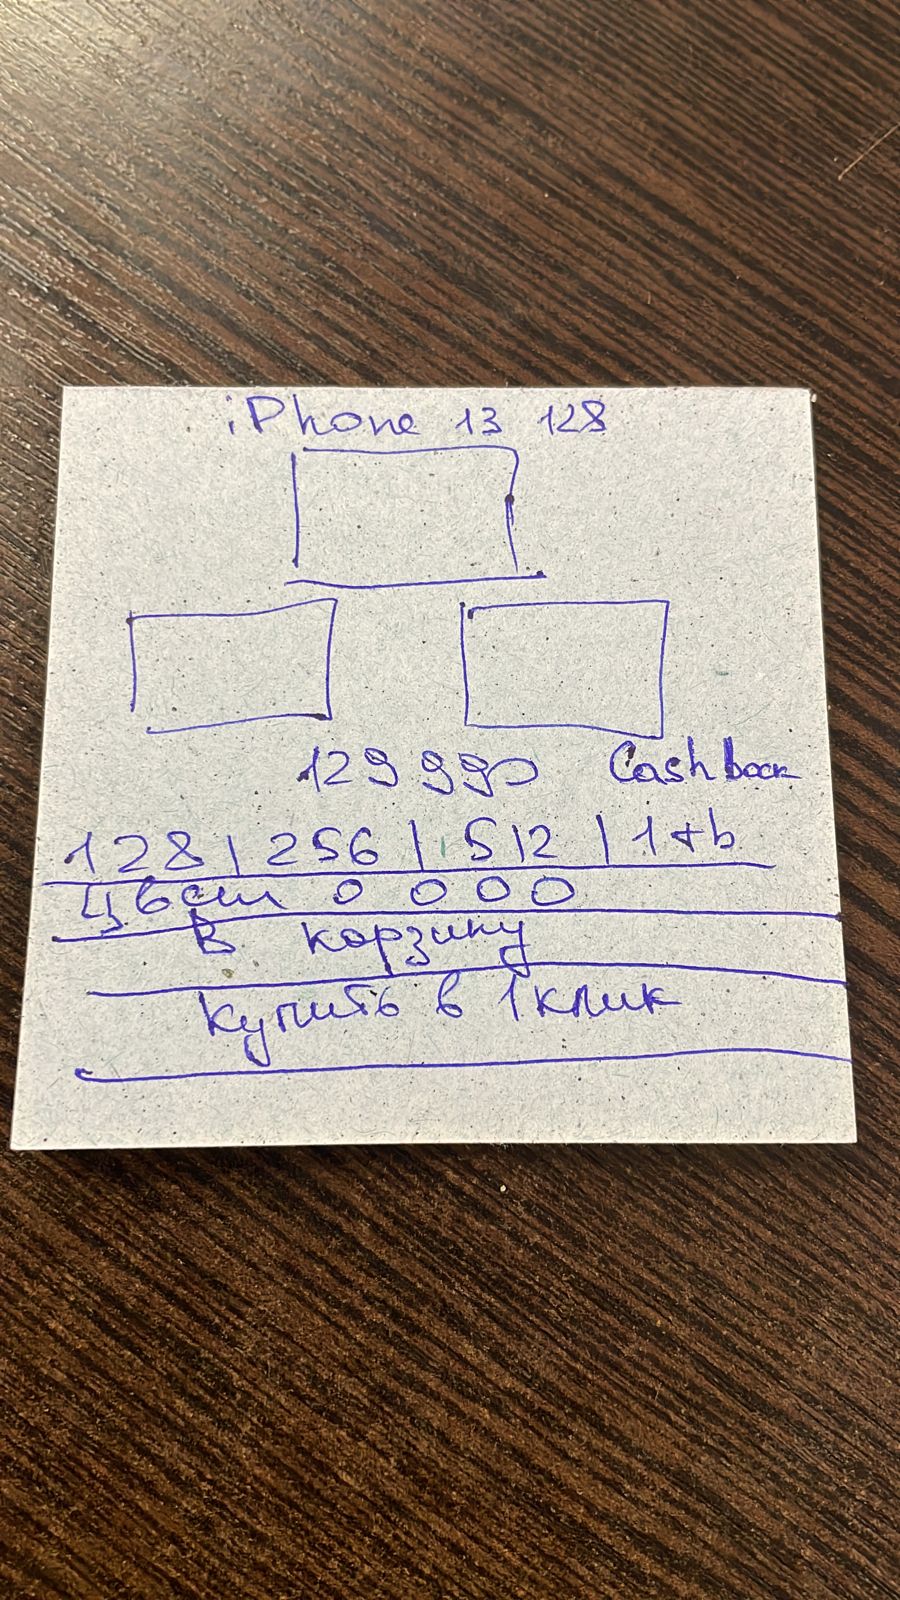 iPhone 13 128
129 990 Cashback
128 | 256 | 512 | 1 tb
Цвет
В корзину
Купить в 1 клик